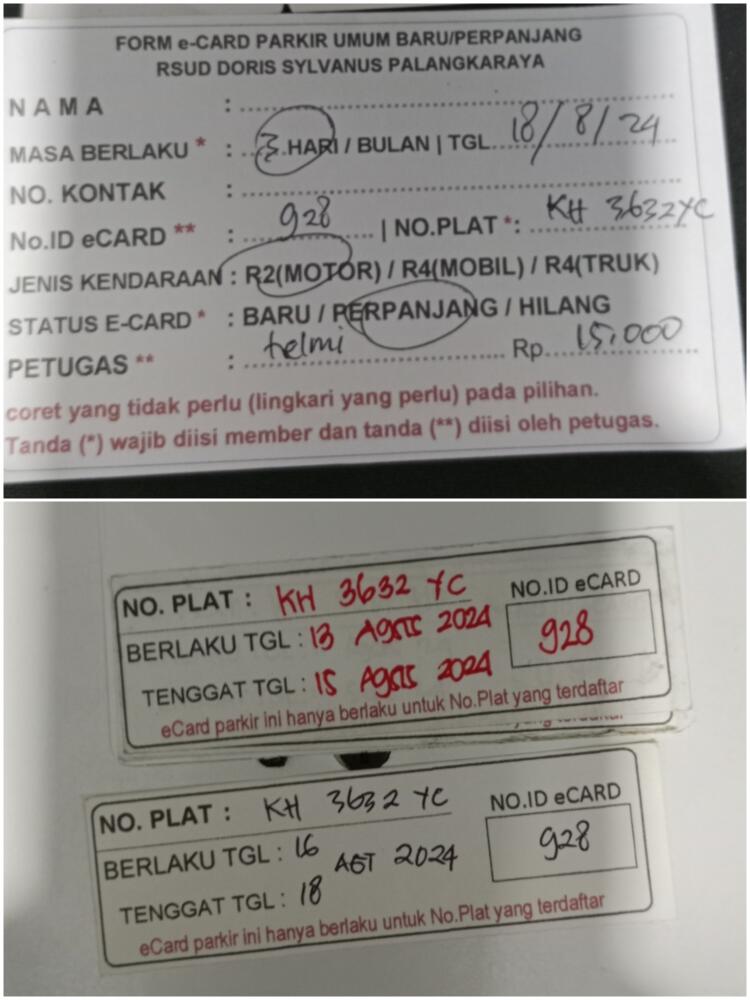 FORM e-CARD PARKIR UMUM BARU/PERPANJANG
RSUD DORIS SYLVANUS PALANGKARAYA
NAMA :
MASA BERLAKU * : 3 HARI / BULAN | TGL 18/8/24
NO. KONTAK :
No.ID eCARD ** : 928 | NO.PLAT *: KH 3632YC
JENIS KENDARAAN : R2(MOTOR) / R4(MOBIL) / R4(TRUK)
STATUS E-CARD * : BARU / PERPANJANG / HILANG
PETUGAS ** : helmi Rp. 15.000
coret yang tidak perlu (lingkari yang perlu) pada pilihan.
Tanda (*) wajib diisi member dan tanda (**) diisi oleh petugas.
NO. PLAT : KH 3632 YC NO.ID eCARD
BERLAKU TGL : 13 AGSTS 2024 928
TENGGAT TGL : 15 AGSTS 2024
eCard parkir ini hanya berlaku untuk No.Plat yang terdaftar
yang terdaftar
NO. PLAT : KH 3632 YC NO.ID eCARD
BERLAKU TGL : 16 AGT 2024 928
TENGGAT TGL : 18
eCard parkir ini hanya berlaku untuk No.Plat yang terdaftar